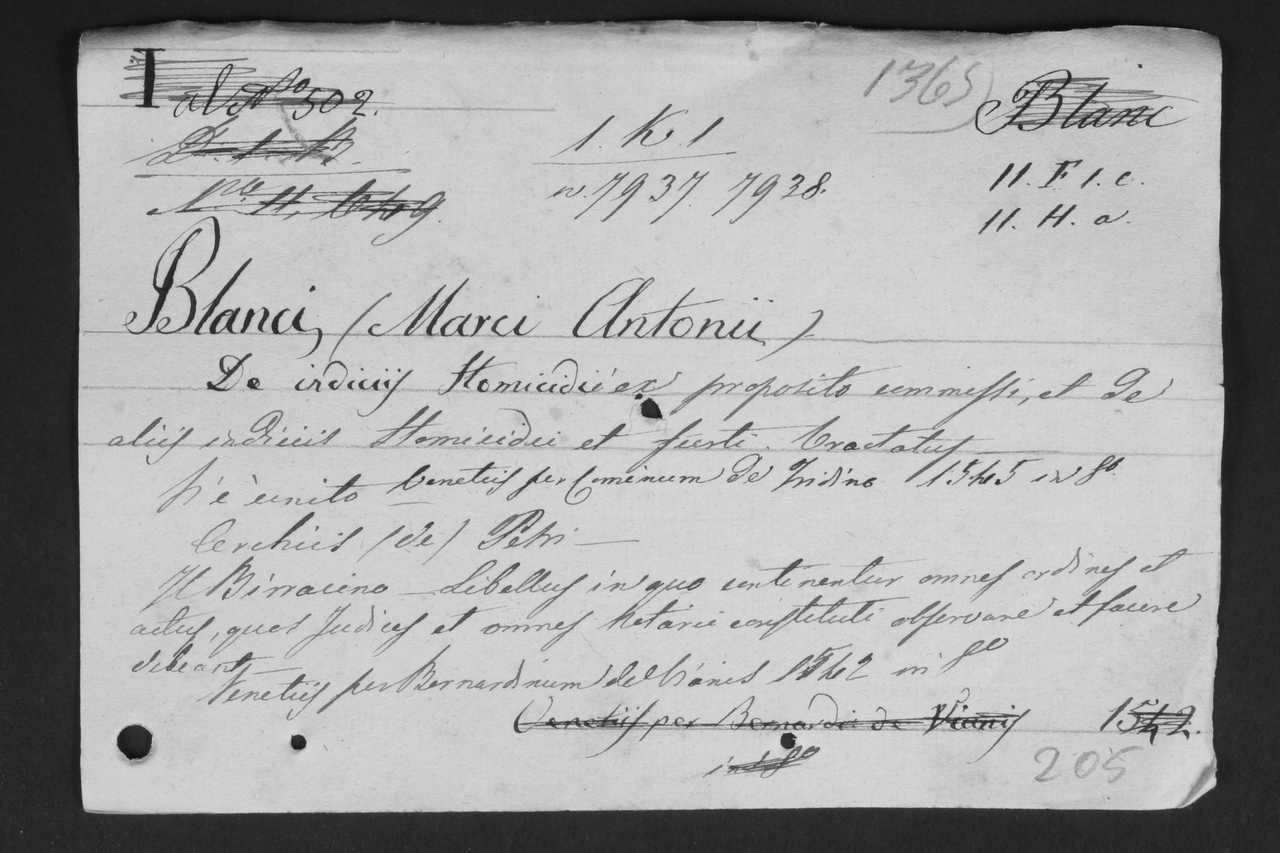 al No 502.
1365
Blanc
D. 1. B.
1. K. 1
No. H. 649.
n. 7937. 7938.
11. F. 1. c.
11. H. a.
Blanci, (Marci Antonii)
De indiciis Homicidii ex proposito commissi, et de
aliis indiciis Homicidii et furti. Tractatus
v'è unito Venetiis per Cominum de Tridino 1545 in 8o
Cerchiis (de) Petri —
Il Birracino — Libellus in quo continentur omnes ordines et
actus, quos Judices et omnes Notarii constituti observare et facere
debeant —
Venetiis per Bernardinum de Vianis 1542 in 8o
Venetiis per Bernardi de Vianis 1542.
in 8o
205